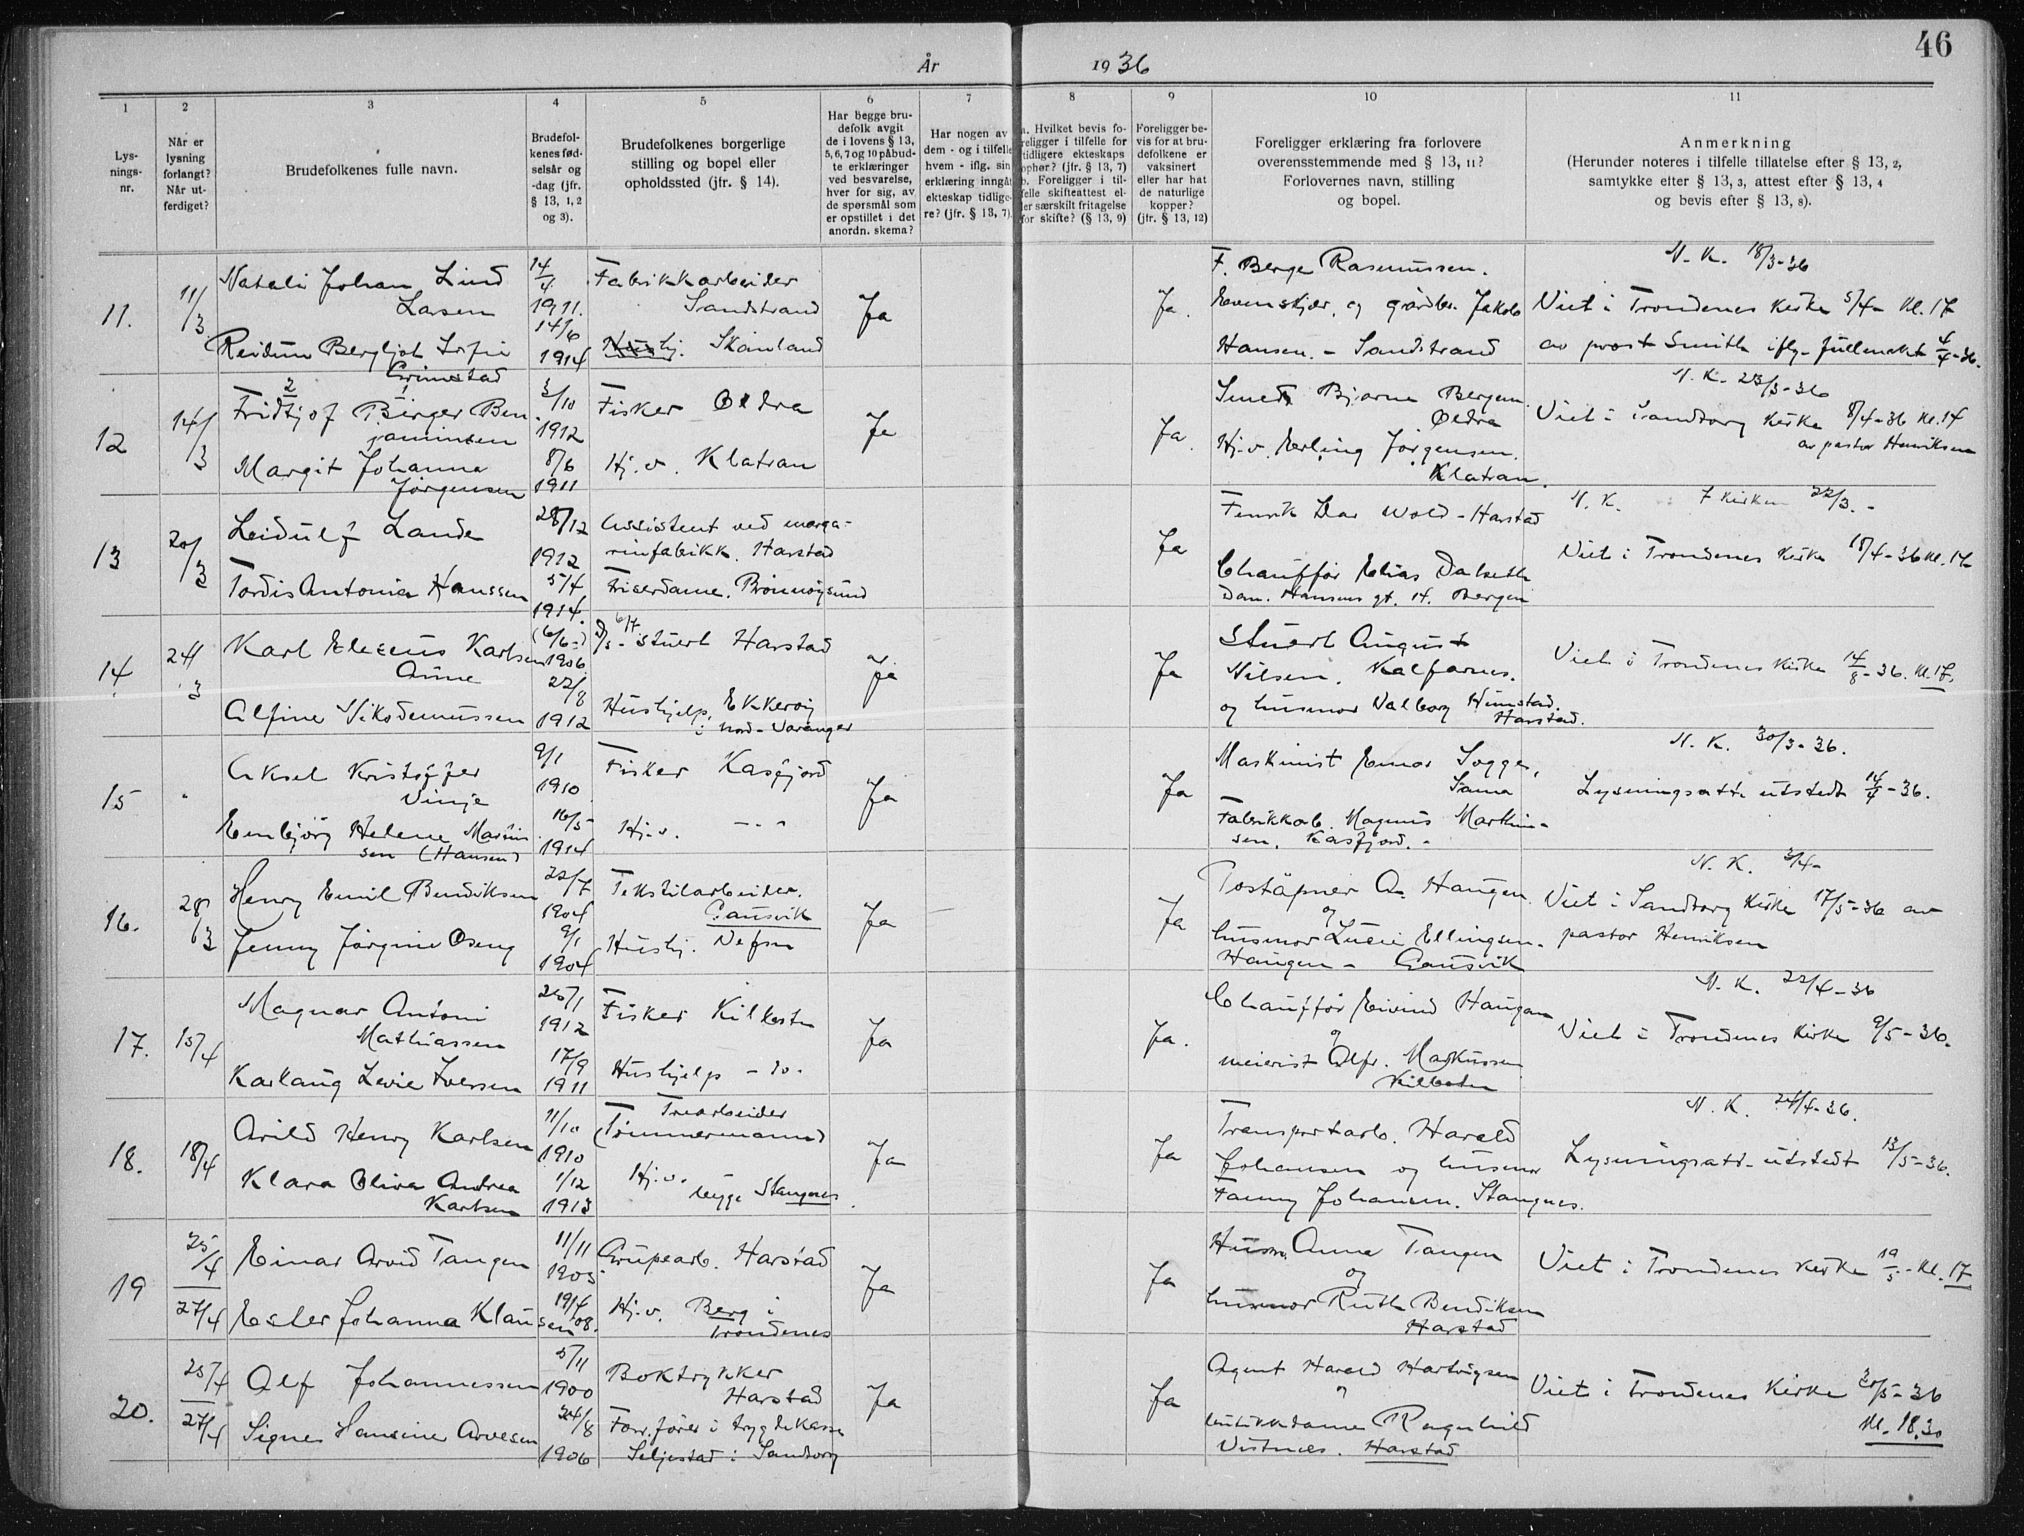 46
År 1936
1 2 3 4 5 6 7 8 9 10 11
Lys-
nings-
nr.
Når er
lysning
forlangt?
Når ut-
ferdiget?
Brudefolkenes fulle navn.
Brudefol-
kenes fød-
selsår og
-dag (jfr.
§ 13, 1, 2
og 3).
Brudefolkenes borgerlige
stilling og bopel eller
opholdssted (jfr. § 14).
Har begge bru-
defolk avgit
de i lovens § 13,
5, 6, 7 og 10 påbud-
te erklæringer
ved besvarelse,
hver for sig, av
de spørsmål som
er opstillet i det
anordn. skema?
Har nogen av
dem - og i tilfelle
hvem - iflg. sin
erklæring inngåt
ekteskap tidlige-
re? (jfr. § 13, 7).
a. Hvilket bevis fo-
religger i tilfelle for
tidligere ekteskaps
ophør? (jfr. § 13, 7)
b. Foreligger i til-
felle skifteattest el-
ler særskilt fritagelse
for skifte? (§ 13, 9)
Foreligger be-
vis for at bru-
defolkene er
vaksinert
eller har hat
de naturlige
kopper?
(jfr. § 13, 12)
Foreligger erklæring fra forlovere
overensstemmende med § 13, 11?
Forlovernes navn, stilling
og bopel.
Anmerkning
(Herunder noteres i tilfelle tillatelse efter § 13, 2,
samtykke efter § 13, 3, attest efter § 13, 4
og bevis efter § 13, 8).
11. 11/3
Natali Johan Lind
Larsen
14/4 1911.
Fabrikkarbeider
Sandstrand
Reidun Bergljot Sofie
Grimstad
14/6 1914
Hushj. Skånland
Ja
Ja.
F. Berge Rasmussen.
Evenskjer, og gårdbr. Jakob
Hansen. - Sandstrand
N. K. 18/3-36
Viet i Trondenes kirke 5/4- kl. 17
av prost Smith iflg. fullmakt 4/4-36.
12 14/3
Fridtjof Birger Ben
jaminsen
3/10 1912
Fisker
Margit Johanna
Jørgensen
8/6 1911
Hj.v. Klatran
Ja
Ja.
Smed Bjarne Bergum
Hj.v. Erling Jørgensen.
Klatran.
N. K. 23/3-36
Viet i Sandtorg kirke 8/4-36 kl. 14
av pastor Henriksen
13 20/3
Leidulf Lande
28/12 1912
Assistent ved marga-
rinfabrikk. Harstad
Tordis Antonia Hanssen
5/4 1914.
Friserdame. Brønnøysund
Ja
Fenrik Wold - Harstad
Chauffør Elias Dalseth
Dan. Hansens gt. 14. Bergen
N. K. i kirken 22/3. -
Viet i Trondenes kirke 18/4-36 kl. 17
14 24/3
Karl Eleseus Karlsen
Aune
(6/6-) 1906
Stuert Harstad
Alfine Nikodemussen
22/8 1912
Hushjelp, Ekkerøy
i Nord-Varanger
Ja
Ja
Stuert August
Nilsen. Kalfarnes.
og husmor Valborg Hunstad.
Harstad.
Viet i Trondenes kirke 14/8-36. kl. 17.
15 "
Aksel Kristoffer
Vinje
9/1 1910
Fisker Kasfjord
Embjörg Helene Martin
sen (Hansen)
16/5 1914
Hj.v. - " -
Ja
Ja
Maskinist Einar Sogge,
Sama
Fabrikkarb. Magnus Martin-
sen. Kasfjord. -
N. K. 30/3-36.
Lysningsatt. utstedt 14/4-36.
16. 28/3
Henry Emil Bendiksen
22/7 1904
Tekstilarbeider.
Gausvik
Jenny Jørgine Oseng
9/1 1904
Hushj. Vefsn
Ja
Ja
Poståpner A. Haugen
og
husmor Lucie Ellingsen.
Haugen - Gausvik
N. K. 3/4-
Viet i Sandtorg kirke 17/5-36 av
pastor Henriksen
17. 15/4
Magnar Antoni
Mathiassen
25/1 1912
Fisker Kilbotn
Karlaug Levie Iversen
17/9 1911
Hushjelp - do -
Ja
Ja.
Chauffør Eivind Haugan
og
meierist Alfr. Markussen
Kilbotn
N. K. 22/4-36
Viet i Trondenes kirke 9/5-36.
18. 18/4
Arild Henry Karlsen
11/10 1910
Trearbeider
(Tømmermann)
Klara Oliva Andrea
Karlsen
1/12 1913
Hj.v.
begge Stangnes
Ja
Ja
Transportarb. Harald
Johansen og husmor
Fanny Johansen. Stangnes.
N. K. 24/4-36.
Lysningsatt. utstedt 13/5-36.
19 25/4 27/4
Einar Arvid Tangen
11/11 1905
Grupearb. Harstad
Ester Johanna Klau
sen
19/4 08.
Hj.v. Berg i
Trondenes
Ja
Ja
Husm. Anna Tangen
og
husmor Ruth Bendiksen
Harstad
Viet i Trondenes kirke 19/5- kl. 17
20. 25/4 27/4
Alf Johannessen
5/11 1900
Boktrykker
Harstad
Signe Hansine Arvesen
24/8 1906
Forr.fører i trygdekasse
Seljestad i Sandtorg
Ja
Ja
Agent Harald Hartvigsen
og
butikkdame Ragnhild
Vistnes. Harstad
Viet i Trondenes kirke 20/5-36
kl. 18.30